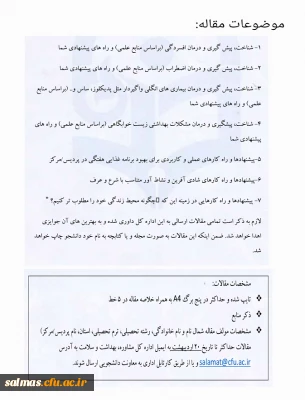 موضوعات مقاله:
۱- شناخت، پیش گیری و درمان افسردگی (براساس منابع علمی) و راه های پیشنهادی شما
۲- شناخت، پیش گیری و درمان اضطراب (براساس منابع علمی) و راه های پیشنهادی شما
۳- شناخت، پیش گیری و درمان بیماری های انگلی واگیردار مثل پدیکلوز، ساس و.. (براساس منابع
علمی) و راه های پیشنهادی شما
۴- شناخت، پیشگیری و درمان مشکلات بهداشتی زیست خوابگاهی (براساس منابع علمی) و راه های
پیشنهادی شما
۵-پیشنهادها و راه کارهای عملی و کاربردی برای بهبود برنامه غذایی هفتگی در پردیس/مرکز
۶-پیشنهادها و راه کارهای شادی آفرین و نشاط آور متناسب با شرع و عرف
۷- پیشنهادها و راه کارهایی در زمینه این که "چگونه محیط زندگی خود را مطلوب تر کنیم؟ "
لازم به ذکر است تمامی مقالات ارسالی به این اداره کل داوری شده و به بهترین های آن جوایزی
اهدا خواهد شد. ضمن اینکه این مقالات به صورت مجله و یا کتابچه به نام خود دانشجو چاپ خواهد
شد.
مشخصات مقالات:
تایپ شده و حداکثر در پنج برگ A4 به همراه خلاصه مقاله در ۵ خط
ذکر منابع
مشخصات مولف مقاله شمال نام و نام خانوادگی، رشته تحصیلی، ترم تحصیلی، استان، نام پردیس/مرکز)
مقالات حداکثر تا تاریخ ۲۰اردیبهشت به ایمیل اداره کل مشاوره، بهداشت و سلامت به آدرس
salamat@cfu.ac.ir و یا از طریق کارتابل اداری به معاونت دانشجویی ارسال شوند.
salmas.cfu.ac.ir